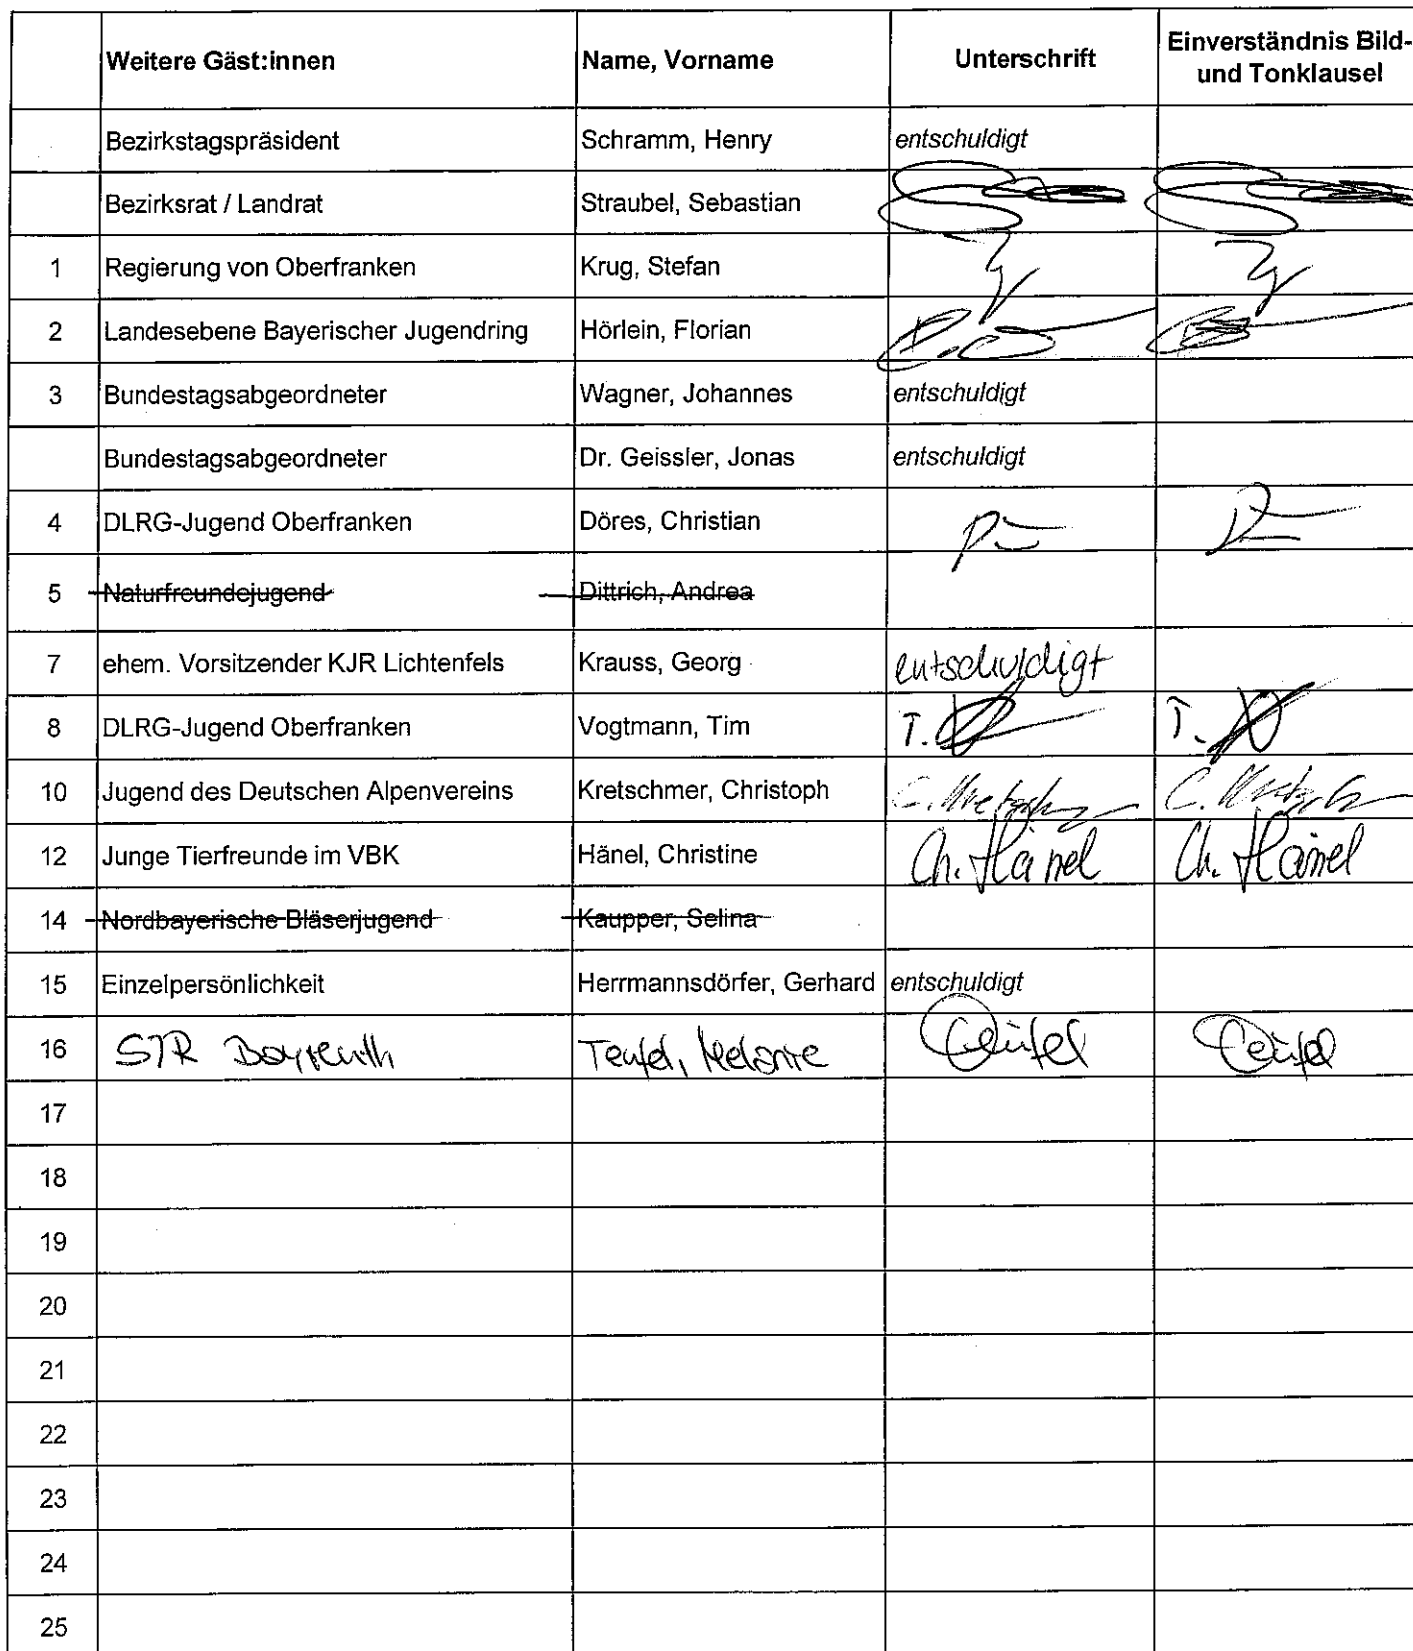 Weitere Gäst:innen Name, Vorname Unterschrift Einverständnis Bild-
und Tonklausel
Bezirkstagspräsident Schramm, Henry entschuldigt
Bezirksrat / Landrat Straubel, Sebastian
1 Regierung von Oberfranken Krug, Stefan
2 Landesebene Bayerischer Jugendring Hörlein, Florian
3 Bundestagsabgeordneter Wagner, Johannes entschuldigt
Bundestagsabgeordneter Dr. Geissler, Jonas entschuldigt
4 DLRG-Jugend Oberfranken Döres, Christian
5 Naturfreundejugend Dittrich, Andrea
7 ehem. Vorsitzender KJR Lichtenfels Krauss, Georg entschuldigt
8 DLRG-Jugend Oberfranken Vogtmann, Tim T. T.
10 Jugend des Deutschen Alpenvereins Kretschmer, Christoph
12 Junge Tierfreunde im VBK Hänel, Christine Ch. Hänel Ch. Hänel
14 Nordbayerische Bläserjugend Kaupper, Selina
15 Einzelpersönlichkeit Herrmannsdörfer, Gerhard entschuldigt
16 SJR Bayreuth Teufel, Melanie Teufel Teufel
17
18
19
20
21
22
23
24
25